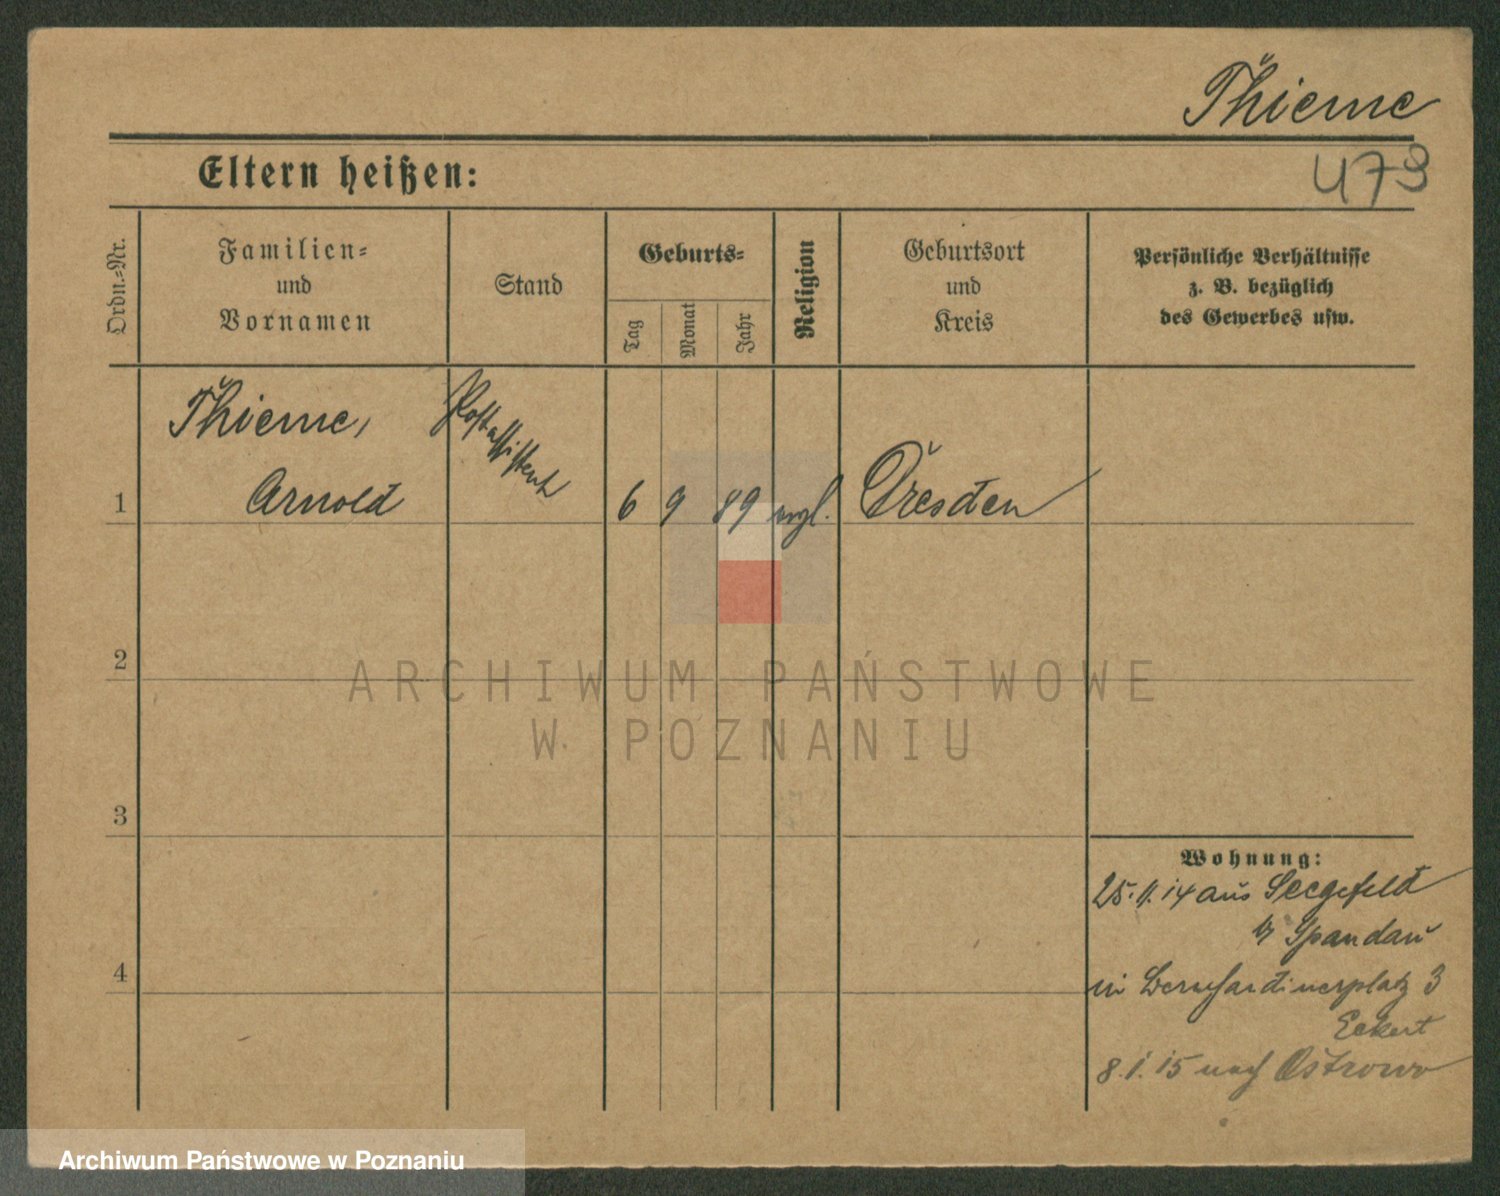 Thieme
479
Eltern heißen:
Ordn.-Nr.
Familien-
und
Vornamen
Stand
Geburts-
Tag
Monat
Jahr
Religion
Geburtsort
und
Kreis
Persönliche Verhältnisse
z. B. bezüglich
des Gewerbes usw.
Thieme,
Postassistent
1 Arnold 6 9 89 evgl. Dresden
2
ARCHIWUM PAŃSTWOWE
W POZNANIU
3
Wohnung:
25. 11. 14 aus Seegefeld
b/ Spandau
4
in Bernhardinerplatz 3
Eckert
8. 1. 15 nach Ostrowo
Archiwum Państwowe w Poznaniu